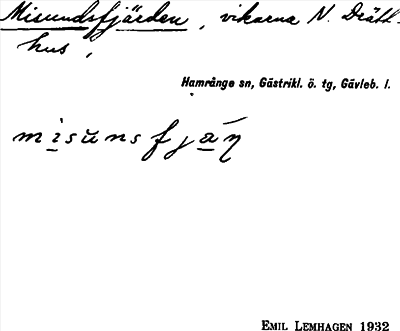 Misundsfjärden, vikarna N. Drätt-
hus,
Hamrånge sn, Gästrikl. ö. tg, Gävleb. l.
misŭnsfjáꞃ
EMIL LEMHAGEN 1932